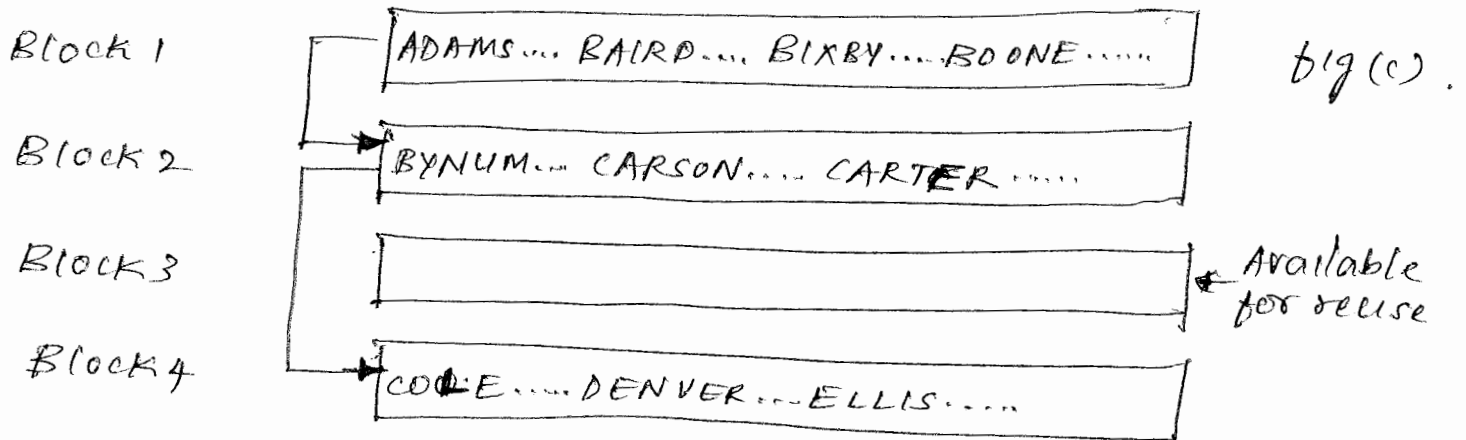 Block 1 ADAMS... BAIRD.... BIXBY.....BOONE...... fig (c).
Block 2 BYNUM... CARSON.... CARTER.....
Block 3 Available
for reuse
Block 4 COLE.....DENVER...ELLIS.....